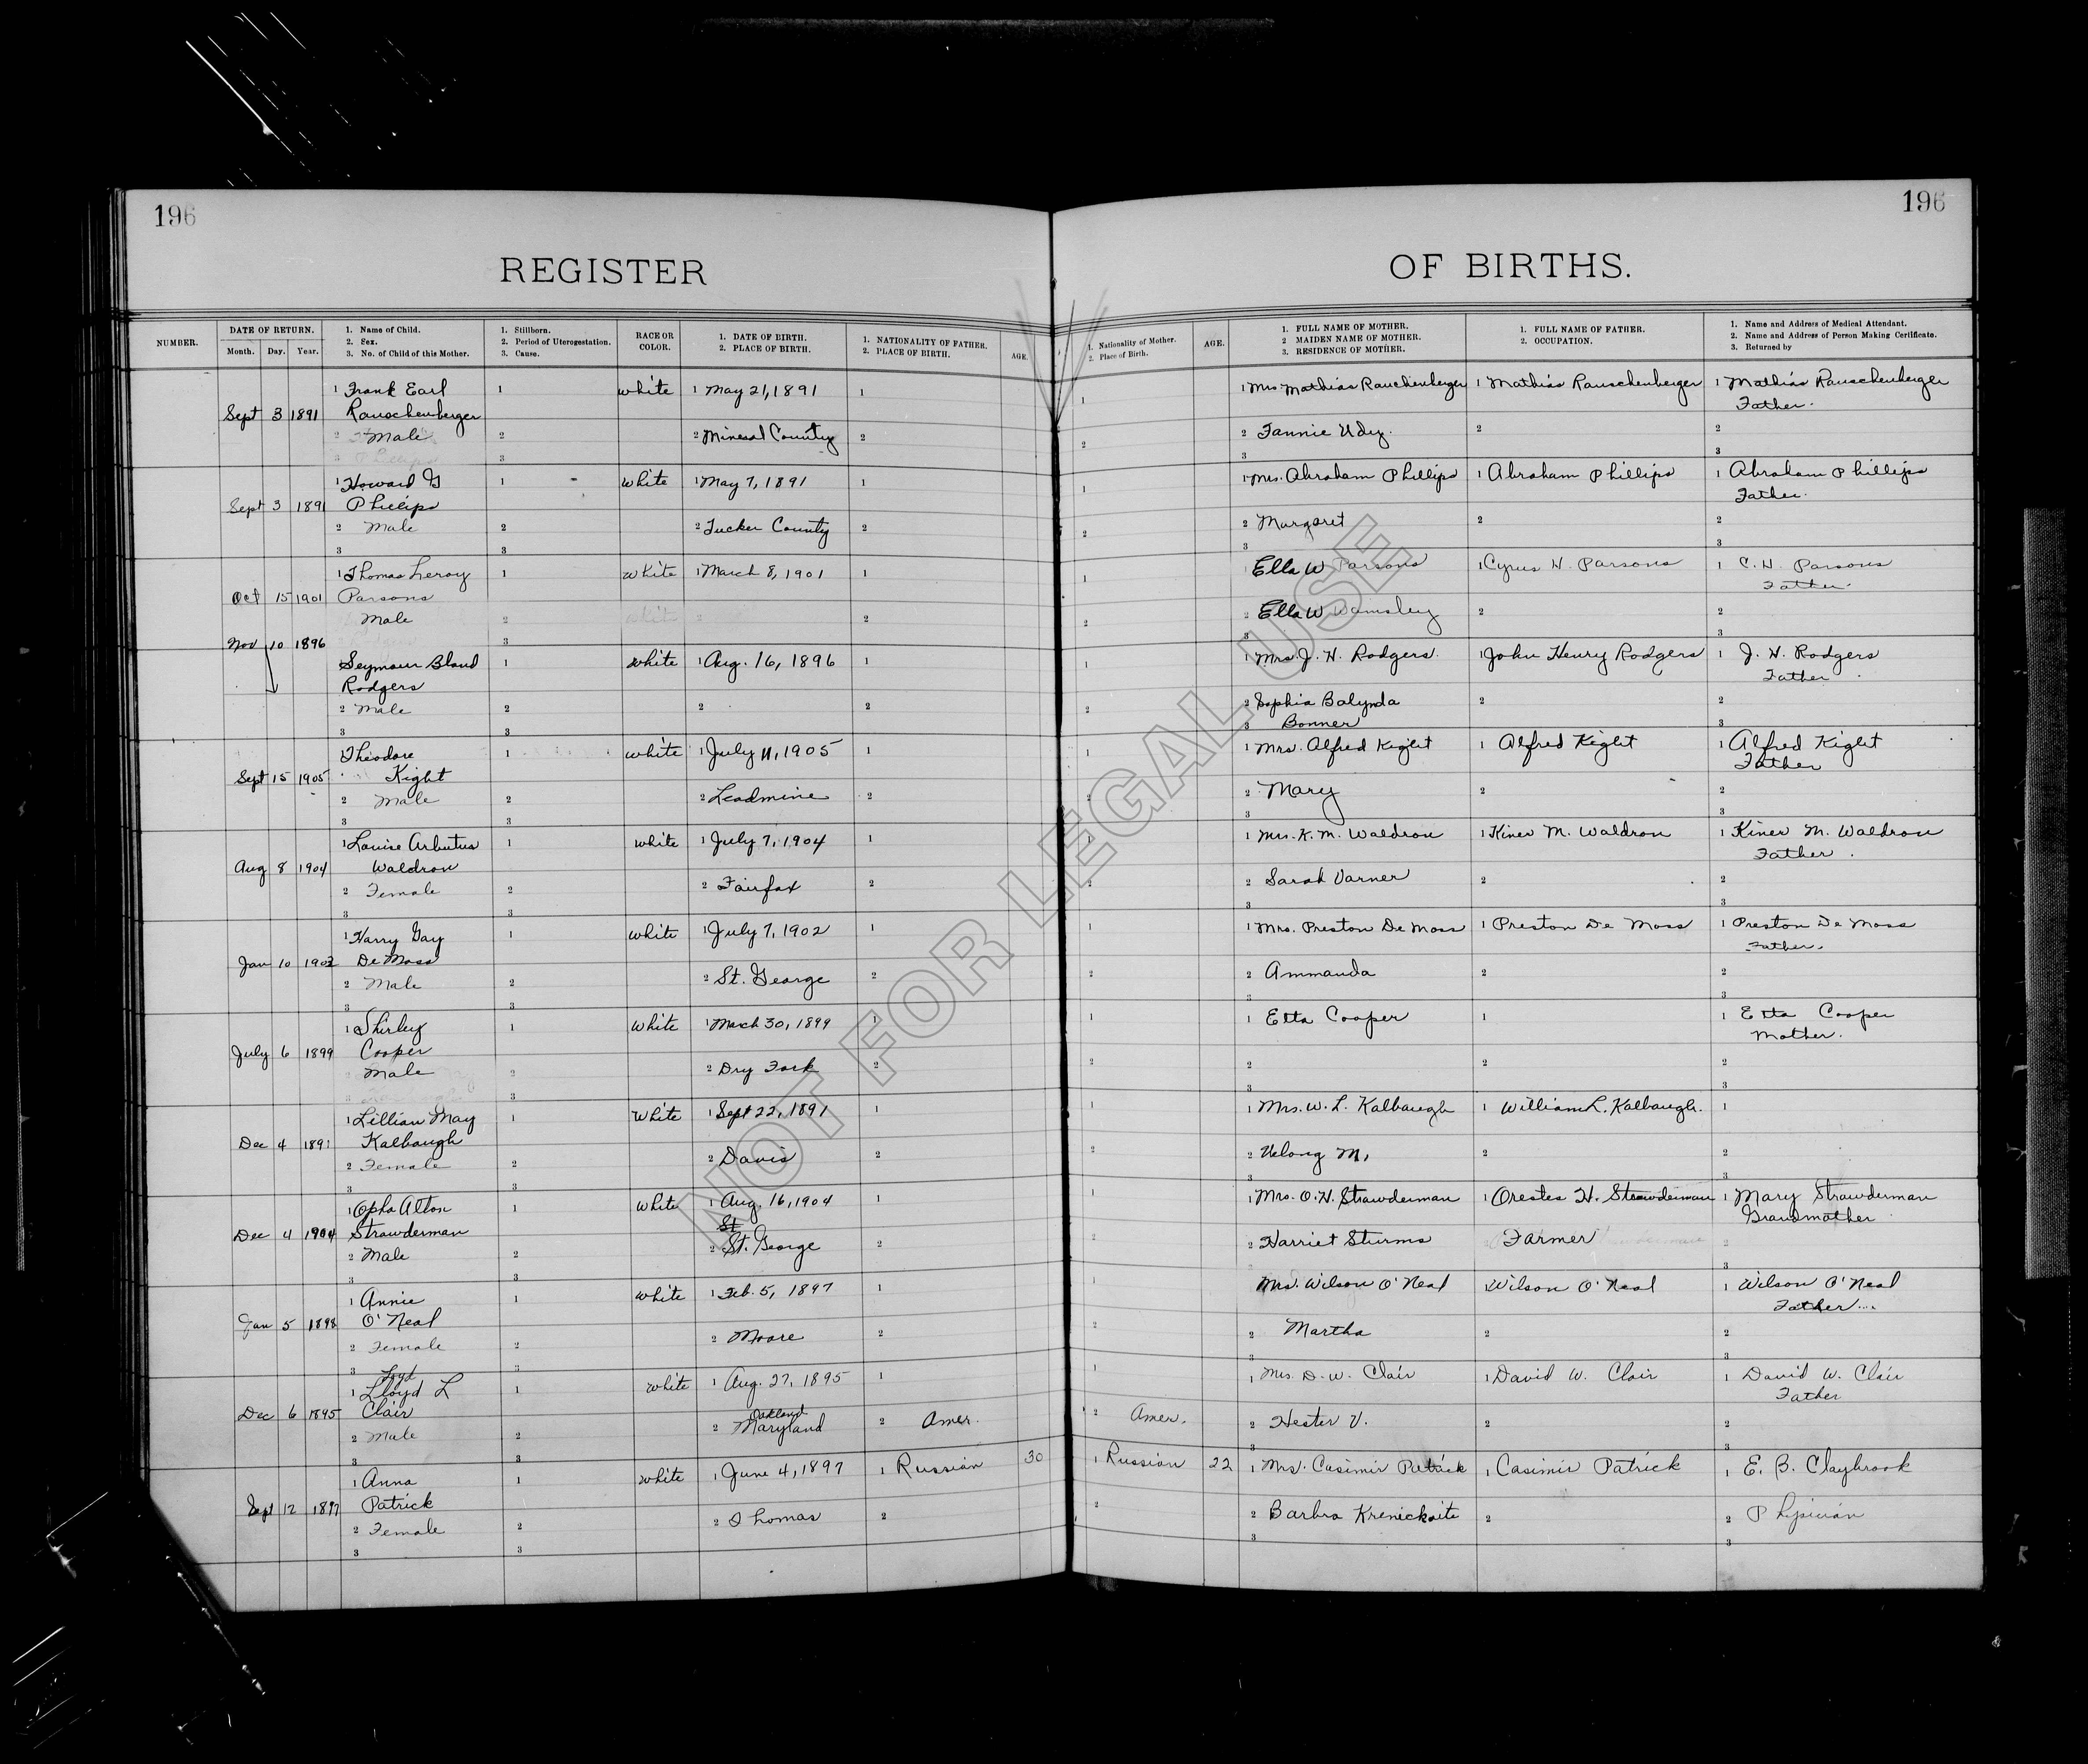 196
196
REGISTER
OF BIRTHS.
NUMBER.
DATE OF RETURN.
Month. Day. Year.
1. Name of Child.
2. Sex.
3. No. of Child of this Mother.
1. Stillborn.
2. Period of Uterogestation.
3. Cause.
RACE OR
COLOR.
1. DATE OF BIRTH.
2. PLACE OF BIRTH.
1. NATIONALITY OF FATHER.
2. PLACE OF BIRTH.
AGE.
1. Nationality of Mother.
2. Place of Birth.
AGE.
1. FULL NAME OF MOTHER.
2 MAIDEN NAME OF MOTHER.
3. RESIDENCE OF MOTHER.
1. FULL NAME OF FATHER.
2. OCCUPATION.
1. Name and Address of Medical Attendant.
2. Name and Address of Person Making Certificate.
3. Returned by
1 Frank Earl 1 white 1 May 21, 1891 1 1 1 Mrs Mathias Rauchenberger 1 Mathias Rauschenberger 1 Mathias Rauschenberger
Sept 3 1891 Rauschenberger Father.
2 Male 2 2 Mineral County 2 2 2 Fannie Udy. 2 2
3 Phillips 3 3 3
1 Howard G 1 white 1 May 7, 1891 1 1 1 Mrs. Abraham Phillips 1 Abraham Phillips 1 Abraham Phillips
Sept 3 1891 Phillips Father.
2 Male 2 2 Tucker County 2 2 2 Margaret 2 2
3 3 3 3
1 Thomas Leroy 1 white 1 March 8, 1901 1 1 Ella W Parsons 1 Cyrus H. Parsons 1 C. H. Parsons
Oct 15 1901 Parsons Father.
Male 2 white 2 2 2 2 Ella W Wamsley 2 2
3 3 3
Nov 10 1896
Seymour Bland 1 white 1 Aug. 16, 1896 1 1 1 Mrs. J. H. Rodgers. 1 John Henry Rodgers 1 J. H. Rodgers
Rodgers Father.
2 Male 2 2 2 2 2 Sophia Balynda 2 2
3 3 3 Bonner 3
1 Theodore 1 white 1 July 11, 1905 1 1 1 Mrs. Alfred Kight 1 Alfred Kight 1 Alfred Kight
Sept 15 1905 Kight Father
2 Male 2 2 Leadmine 2 2 2 Mary 2 2
3 3 3 3
1 Louise Arbutus 1 white 1 July 7, 1904 1 1 1 Mrs. K. M. Waldron 1 Kiner M. Waldron 1 Kiner M. Waldron
Aug 8 1904 Waldron Father.
2 Female 2 2 Fairfax 2 2 2 Sarah Varner 2 2
3 3 3 3
1 Harry Gay 1 white 1 July 7, 1902 1 1 1 Mrs. Preston De Moss 1 Preston De Moss 1 Preston De Moss
Jan 10 1903 De Moss Father.
2 Male 2 2 St. George 2 2 2 Ammanda 2 2
3 3 3 3
1 Shirley 1 white 1 March 30, 1899 1 1 1 Etta Cooper 1 1 Etta Cooper
July 6 1899 Cooper Mother.
2 Male 2 2 Dry Fork 2 2 2 2 2
3 3 3 3
1 Lillian May 1 white 1 Sept 22, 1891 1 1 1 Mrs. W. L. Kalbaugh 1 William L. Kalbaugh. 1
Dec 4 1891 Kalbaugh
2 Female 2 2 Davis 2 2 2 M. 2 2
3 3 3 3
1 Opha Alton 1 white 1 Aug. 16, 1904 1 1 1 Mrs. O. H. Strawderman 1 Orestes H. Strawderman 1 Mary Strawderman
Dec 4 1904 Strawderman St Grandmother
2 Male 2 2 St. George 2 2 2 Harriet Sturms 2 Farmer 2
3 3 3
1 Annie 1 white 1 Feb. 5, 1897 1 1 Mrs. Wilson O'Neal 1 Wilson O'Neal 1 Wilson O'Neal
Jan 5 1898 O'Neal Father....
2 Female 2 2 Moore 2 2 2 Martha 2 2
3 3 3 3
Loyd
1 Lloyd L 1 white 1 Aug. 27, 1895 1 1 1 Mrs. D. W. Clair 1 David W. Clair 1 David W. Clair
Dec 6 1895 Clair Oakland Father
2 Male 2 2 Maryland 2 Amer. 2 Amer. 2 Hester V. 2 2
3 3 3 3
1 Anna 1 white 1 June 4, 1897 1 Russian 30 1 Russian 22 1 Mrs. Casimir Patrick 1 Casimir Patrick 1 E. B. Claybrook
Sept 12 1897 Patrick
2 Female 2 2 Thomas 2 2 2 Barbra Krenickaite 2 2 Physician
3 3 3 3
NOT FOR LEGAL USE